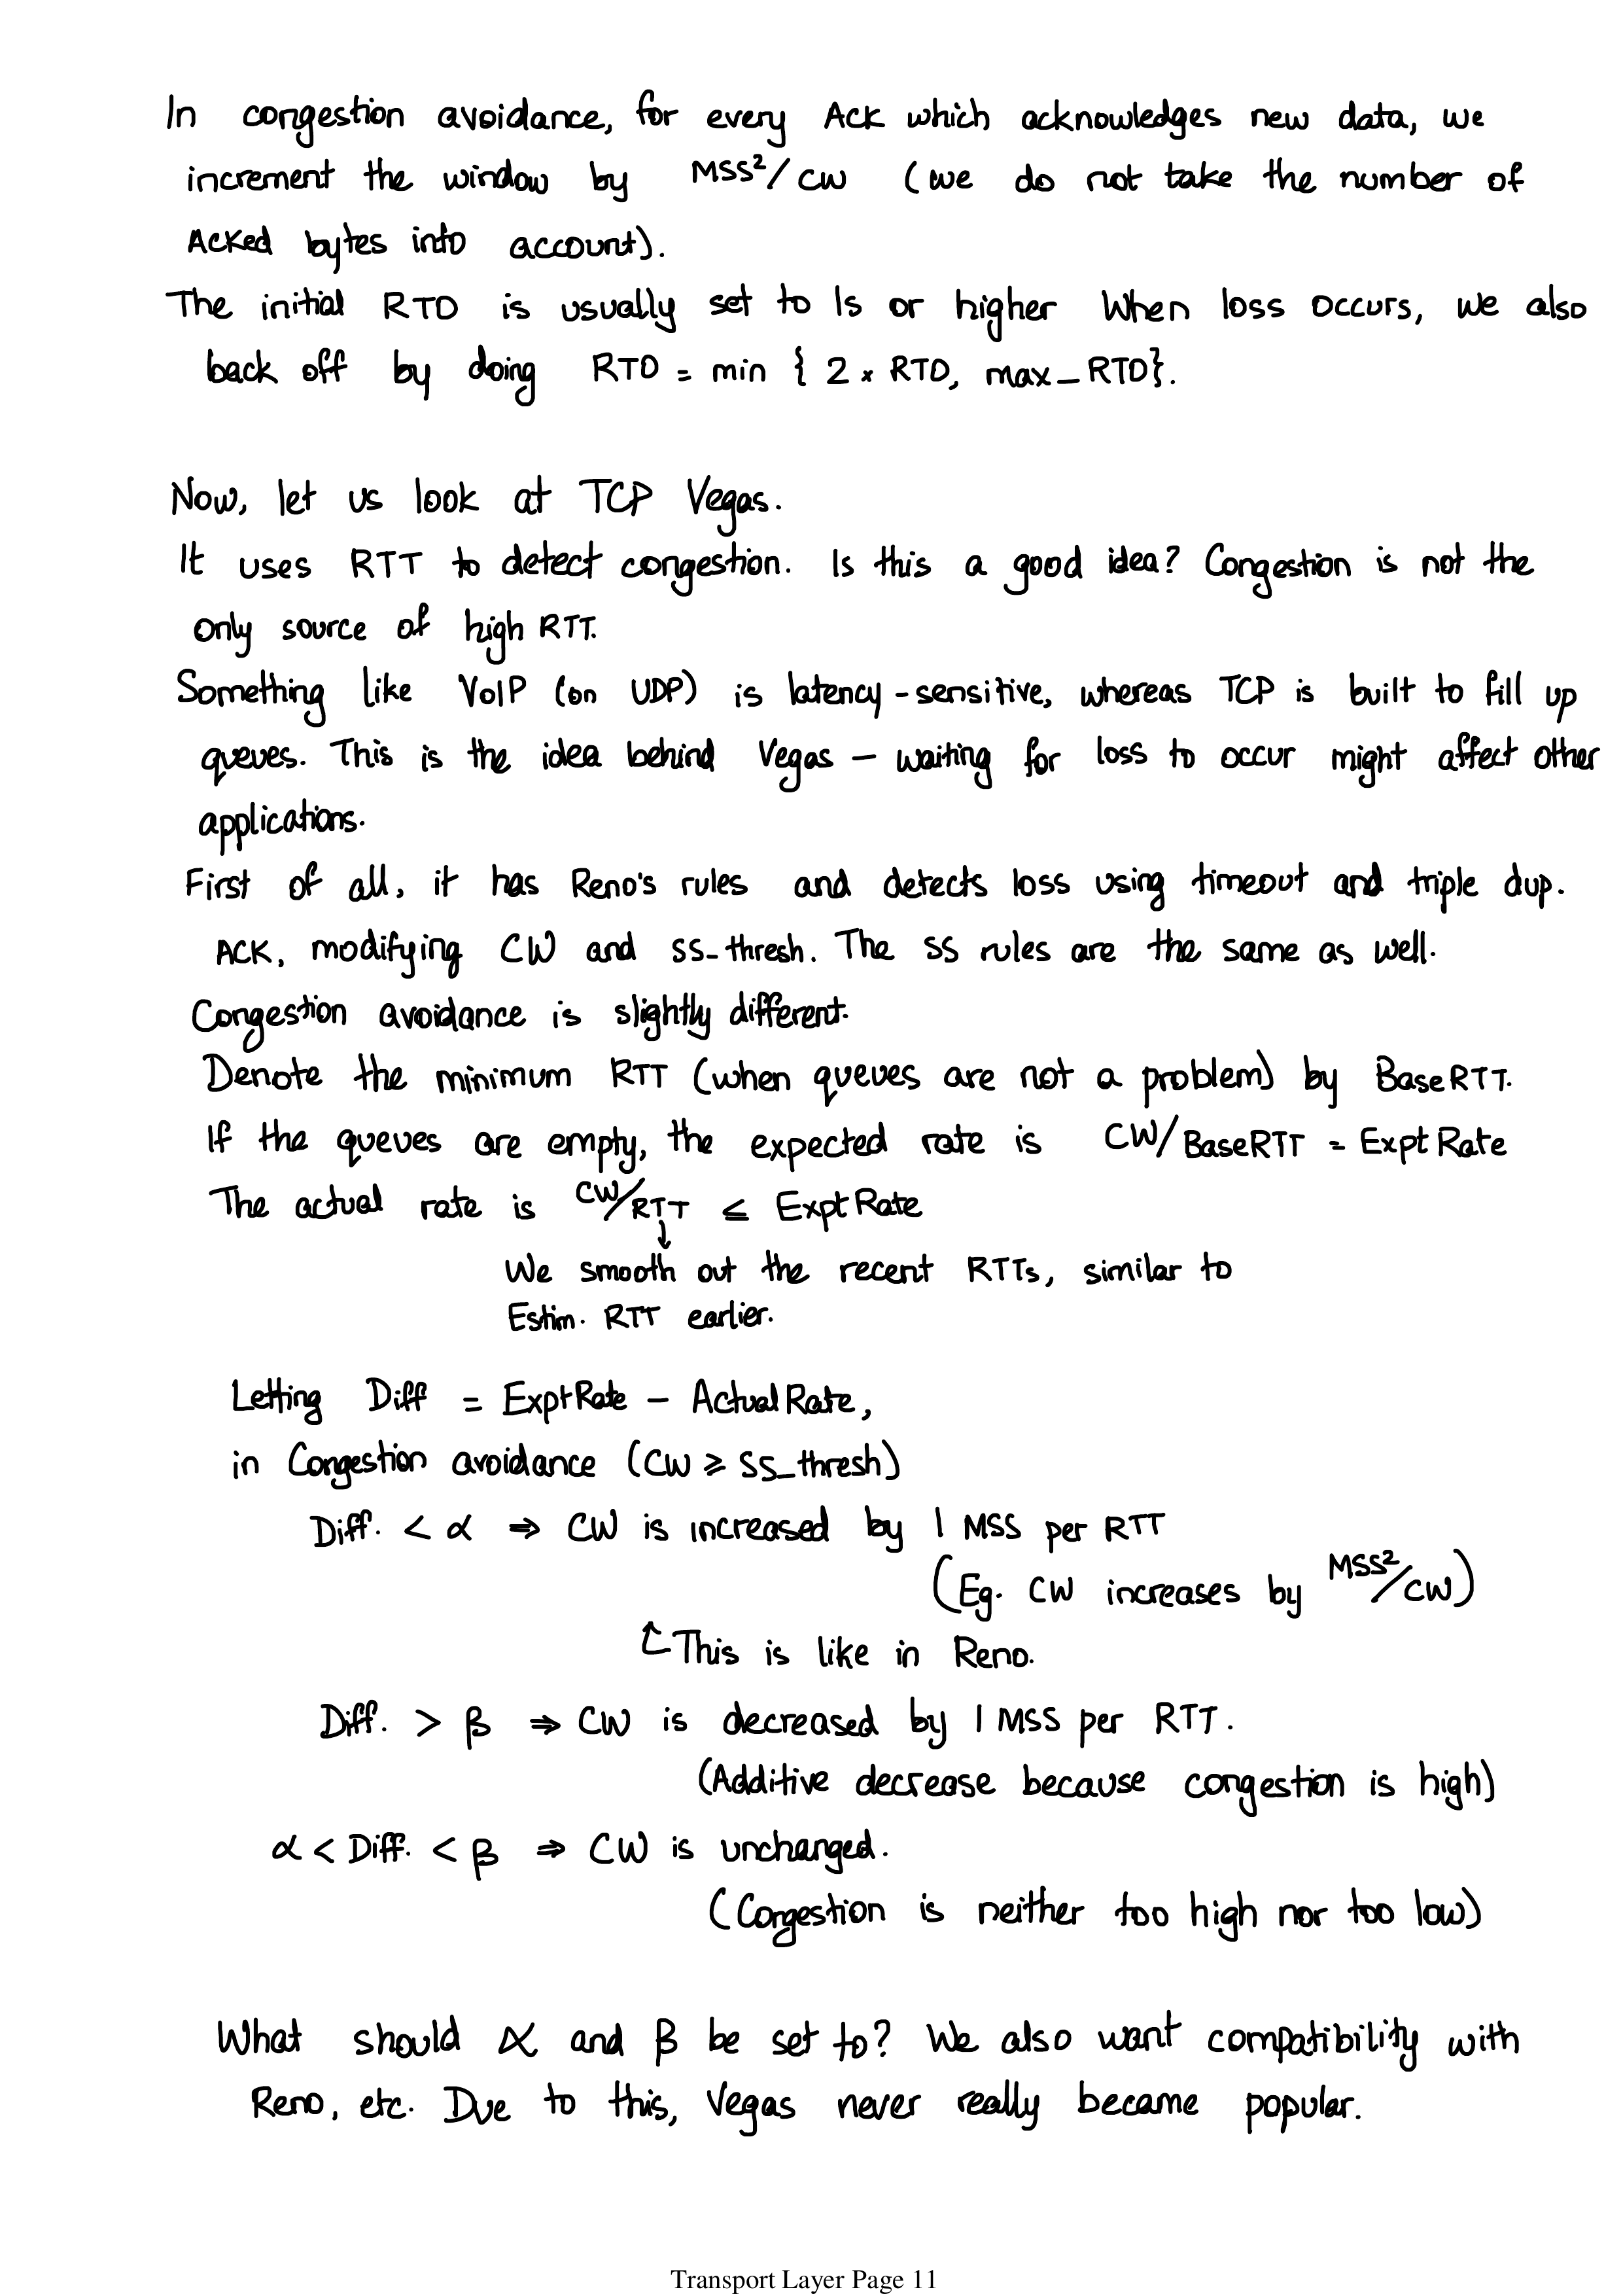 In congestion avoidance, for every Ack which acknowledges new data, we
increment the window by MSS²/CW (we do not take the number of
Acked bytes into account).
The initial RTO is usually set to 1s or higher When loss occurs, we also
back off by doing RTO = min { 2 × RTO, max_RTO}.
Now, let us look at TCP Vegas.
It uses RTT to detect congestion. Is this a good idea? Congestion is not the
only source of high RTT.
Something like VoIP (on UDP) is latency-sensitive, whereas TCP is built to fill up
queues. This is the idea behind Vegas — waiting for loss to occur might affect other
applications.
First of all, it has Reno's rules and detects loss using timeout and triple dup.
ACK, modifying CW and ss_thresh. The SS rules are the same as well.
Congestion avoidance is slightly different.
Denote the minimum RTT (when queues are not a problem) by BaseRTT.
If the queues are empty, the expected rate is CW/BaseRTT = ExptRate
The actual rate is CW/RTT ≤ ExptRate
↓
We smooth out the recent RTTs, similar to
Estim. RTT earlier.
Letting Diff = ExptRate − ActualRate,
in Congestion avoidance (CW ≥ SS_thresh)
Diff. < α ⇒ CW is increased by 1 MSS per RTT
(Eg. CW increases by MSS²/CW)
↑ This is like in Reno.
Diff. > β ⇒ CW is decreased by 1 MSS per RTT.
(Additive decrease because congestion is high)
α < Diff. < β ⇒ CW is unchanged.
(Congestion is neither too high nor too low)
What should α and β be set to? We also want compatibility with
Reno, etc. Due to this, Vegas never really became popular.
Transport Layer Page 11